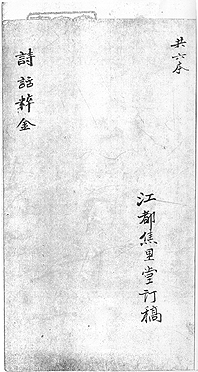 共六本
江都焦里堂訂稿
詩話粹金